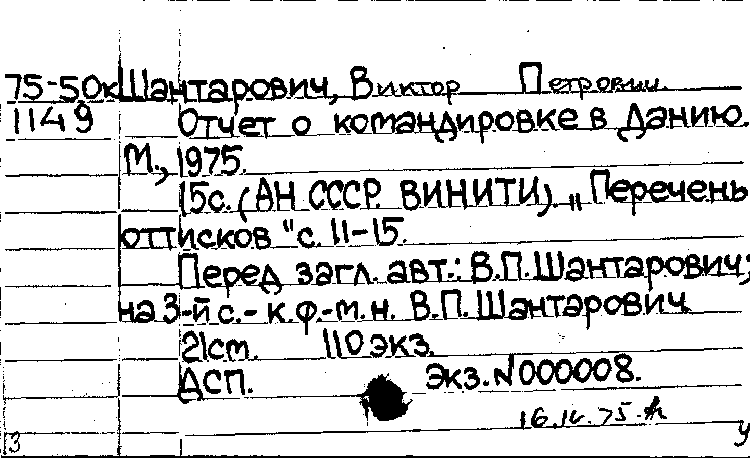 75-50к Шантарович, Виктор Петрович.
1149 Отчет о командировке в Данию.
М., 1975.
15с. (АН СССР. ВИНИТИ). „Перечень
оттисков "с. 11-15.
Перед загл. авт.: В.П.Шантарович;
на 3-й с.- к.ф.-м.н. В.П.Шантарович.
21см. 110 экз.
ДСП. Экз.N000008.
3 у